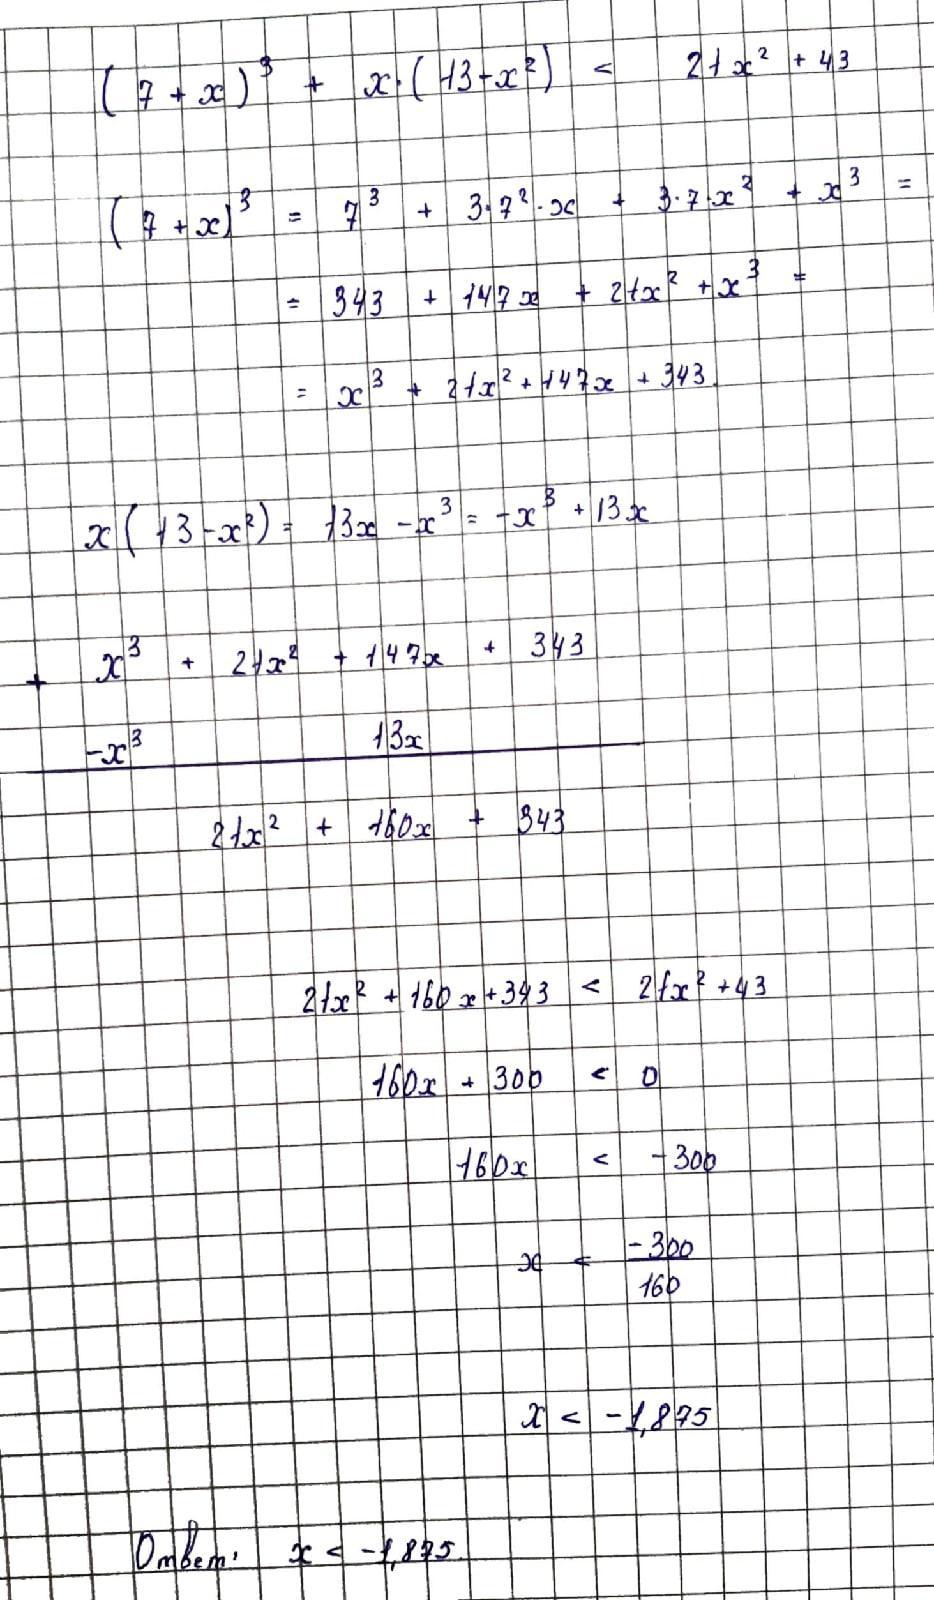 (7 + x)³ + x·(13 - x²) < 21x² + 43
(7 + x)³ = 7³ + 3·7²·x + 3·7·x² + x³ =
= 343 + 147x + 21x² + x³ =
= x³ + 21x² + 147x + 343
x(13 - x²) = 13x - x³ = -x³ + 13x
+ x³ + 21x² + 147x + 343
-x³ 13x
21x² + 160x + 343
21x² + 160x + 343 < 21x² + 43
160x + 300 < 0
160x < -300
x < -300/160
x < -1,875
Ответ: x < -1,875.